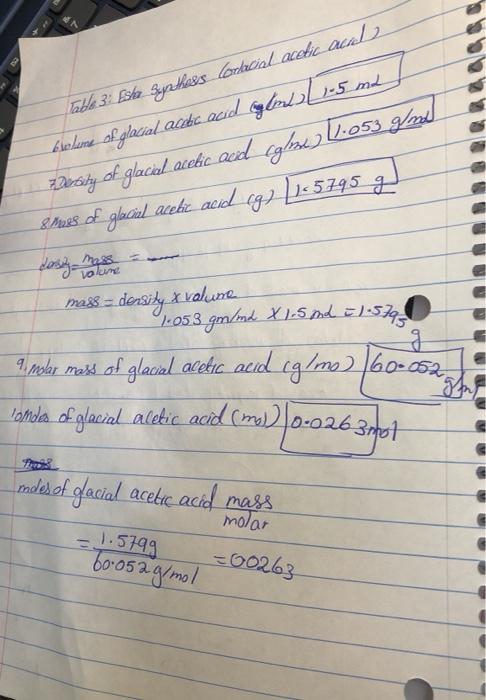 Table 3: Ester Synthesis (Glacial acetic acid)
6. Volume of glacial acetic acid (g/mL) 1.5 mL
7. Density of glacial acetic acid (g/mL) 1.053 g/mL
8. Mass of glacial acetic acid (g) 1.5795 g
density = mass/volume =
mass = density x volume
1.053 gm/mL X 1.5 mL = 1.5795 g
9. molar mass of glacial acetic acid (g/mo) 60.052 g/mol
10 moles of glacial acetic acid (mol) 0.0263 mol
moles of glacial acetic acid mass
molar
= 1.579g = 00263
60.052 g/mol